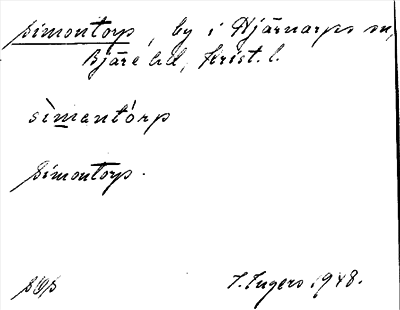 Simontorp, by i Hjärnarps sn,
Bjäre hd, Krist. l.
sìmantórp
Simontorp.
SOS
I. Ingers 1948.